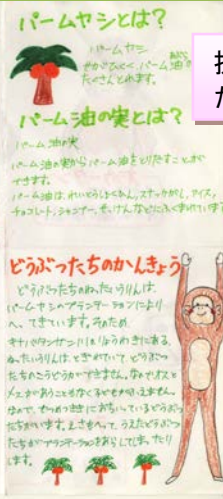 パームヤシとは？
パームヤシ
せがひくく、パーム油が
たくさんとれます。
パーム油の実とは？
パーム油の実
パーム油の実からパーム油をとりだすことが
できます。
パーム油は、れいとうしょくひん、スナックがし、アイス、
チョコレート、シャンプー、せっけんなどに
どうぶつたちのかんきょう
どうぶつたちのねったいうりんは、
パームヤシのプランテーションにより
へってきています。そのため、
キナバタンガン川の川ぞわきにある、
ねったいうりんは、とぎれていて、どうぶつ
たちのこうどうができません。なのでオスと
メスがあうこともなく子どももふえません。
なので、ぜつめつのききにおちいっているどうぶつ
たちがいます。しょくもつへって、うえたどうぶつ
たちがプランテーションをあらしてしまったり
します。